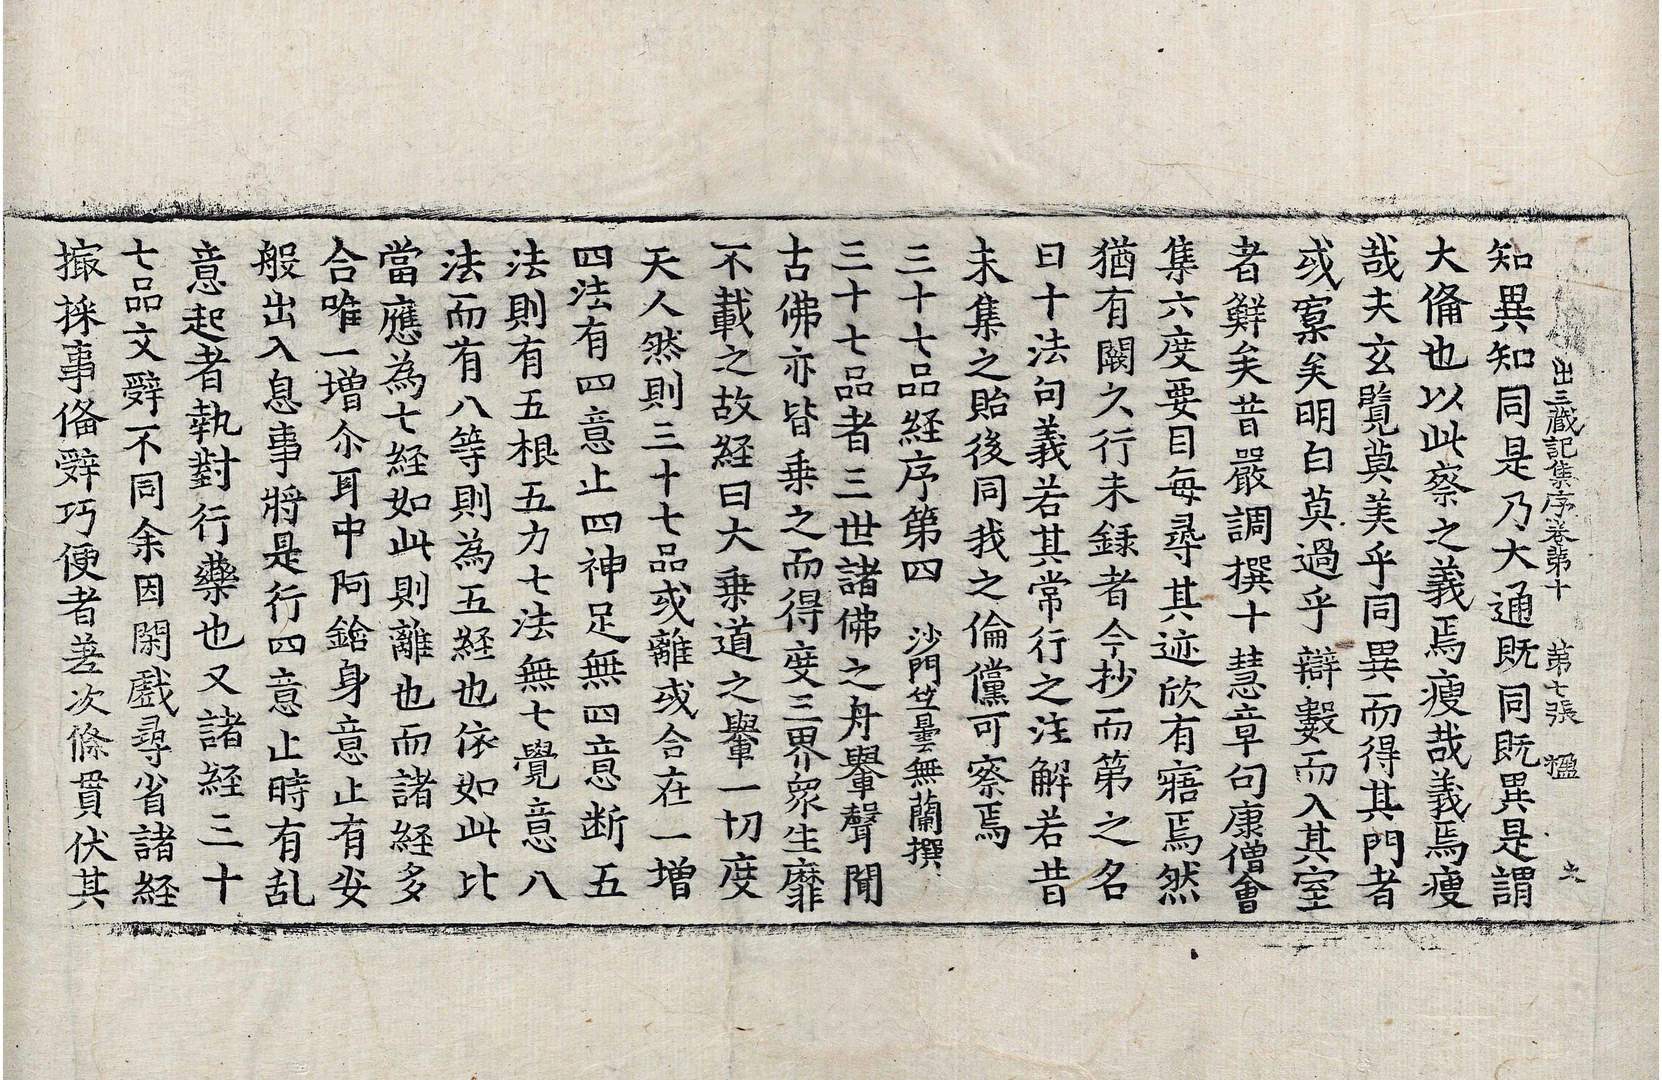 出三藏記集序卷第十 第七張 楹
知異知同是乃大通既同既異是謂
大俻也以此察之義焉瘦哉義焉瘦
哉夫玄覽莫美乎同異而得其門者
或寡矣明白莫過乎辯數而入其室
者鮮矣昔嚴調撰十慧章句康僧會
集六度要目每尋其迹欣有寤焉然
猶有闕文行未録者今抄而第之名
曰十法句義若其常行之注解若昔
未集之貽後同我之倫儻可察焉
三十七品経序第四 沙門竺曇無蘭撰
三十七品者三世諸佛之舟轝聲聞
古佛亦皆乗之而得度三界衆生靡
不載之故経曰大乗道之轝一切度
天人然則三十七品或離或合在一增
四法有四意止四神足無四意断五
法則有五根五力七法無七覺意八
法而有八等則為五経也依如此比
當應為七経如此則離也而諸経多
合唯一增尒耳中阿鋡身意止有安
般出入息事將是行四意止時有乱
意起者執對行藥也又諸経三十
七品文辭不同余因閑戲尋省諸経
撮採事俻辭巧便者差次條貫伏其